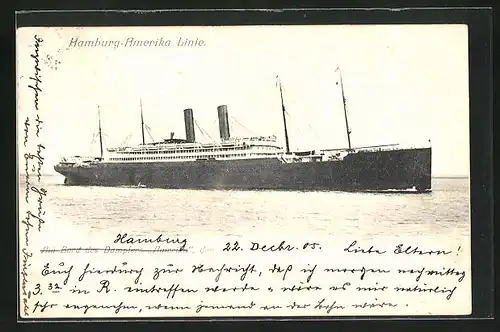 Hamburg-Amerika Linie.
An Bord des Dampfers „Amerika“, d
Hamburg 22. Decbr. 05. Liebe Eltern!
Euch hierdurch zur Nachricht, daß ich morgen nachmittag
3.32 in R. eintreffen werde u. wäre es mir natürlich
sehr angenehm, wenn jemand an der Bahn wäre.
Inzwischen die besten Grüße
von Eurem